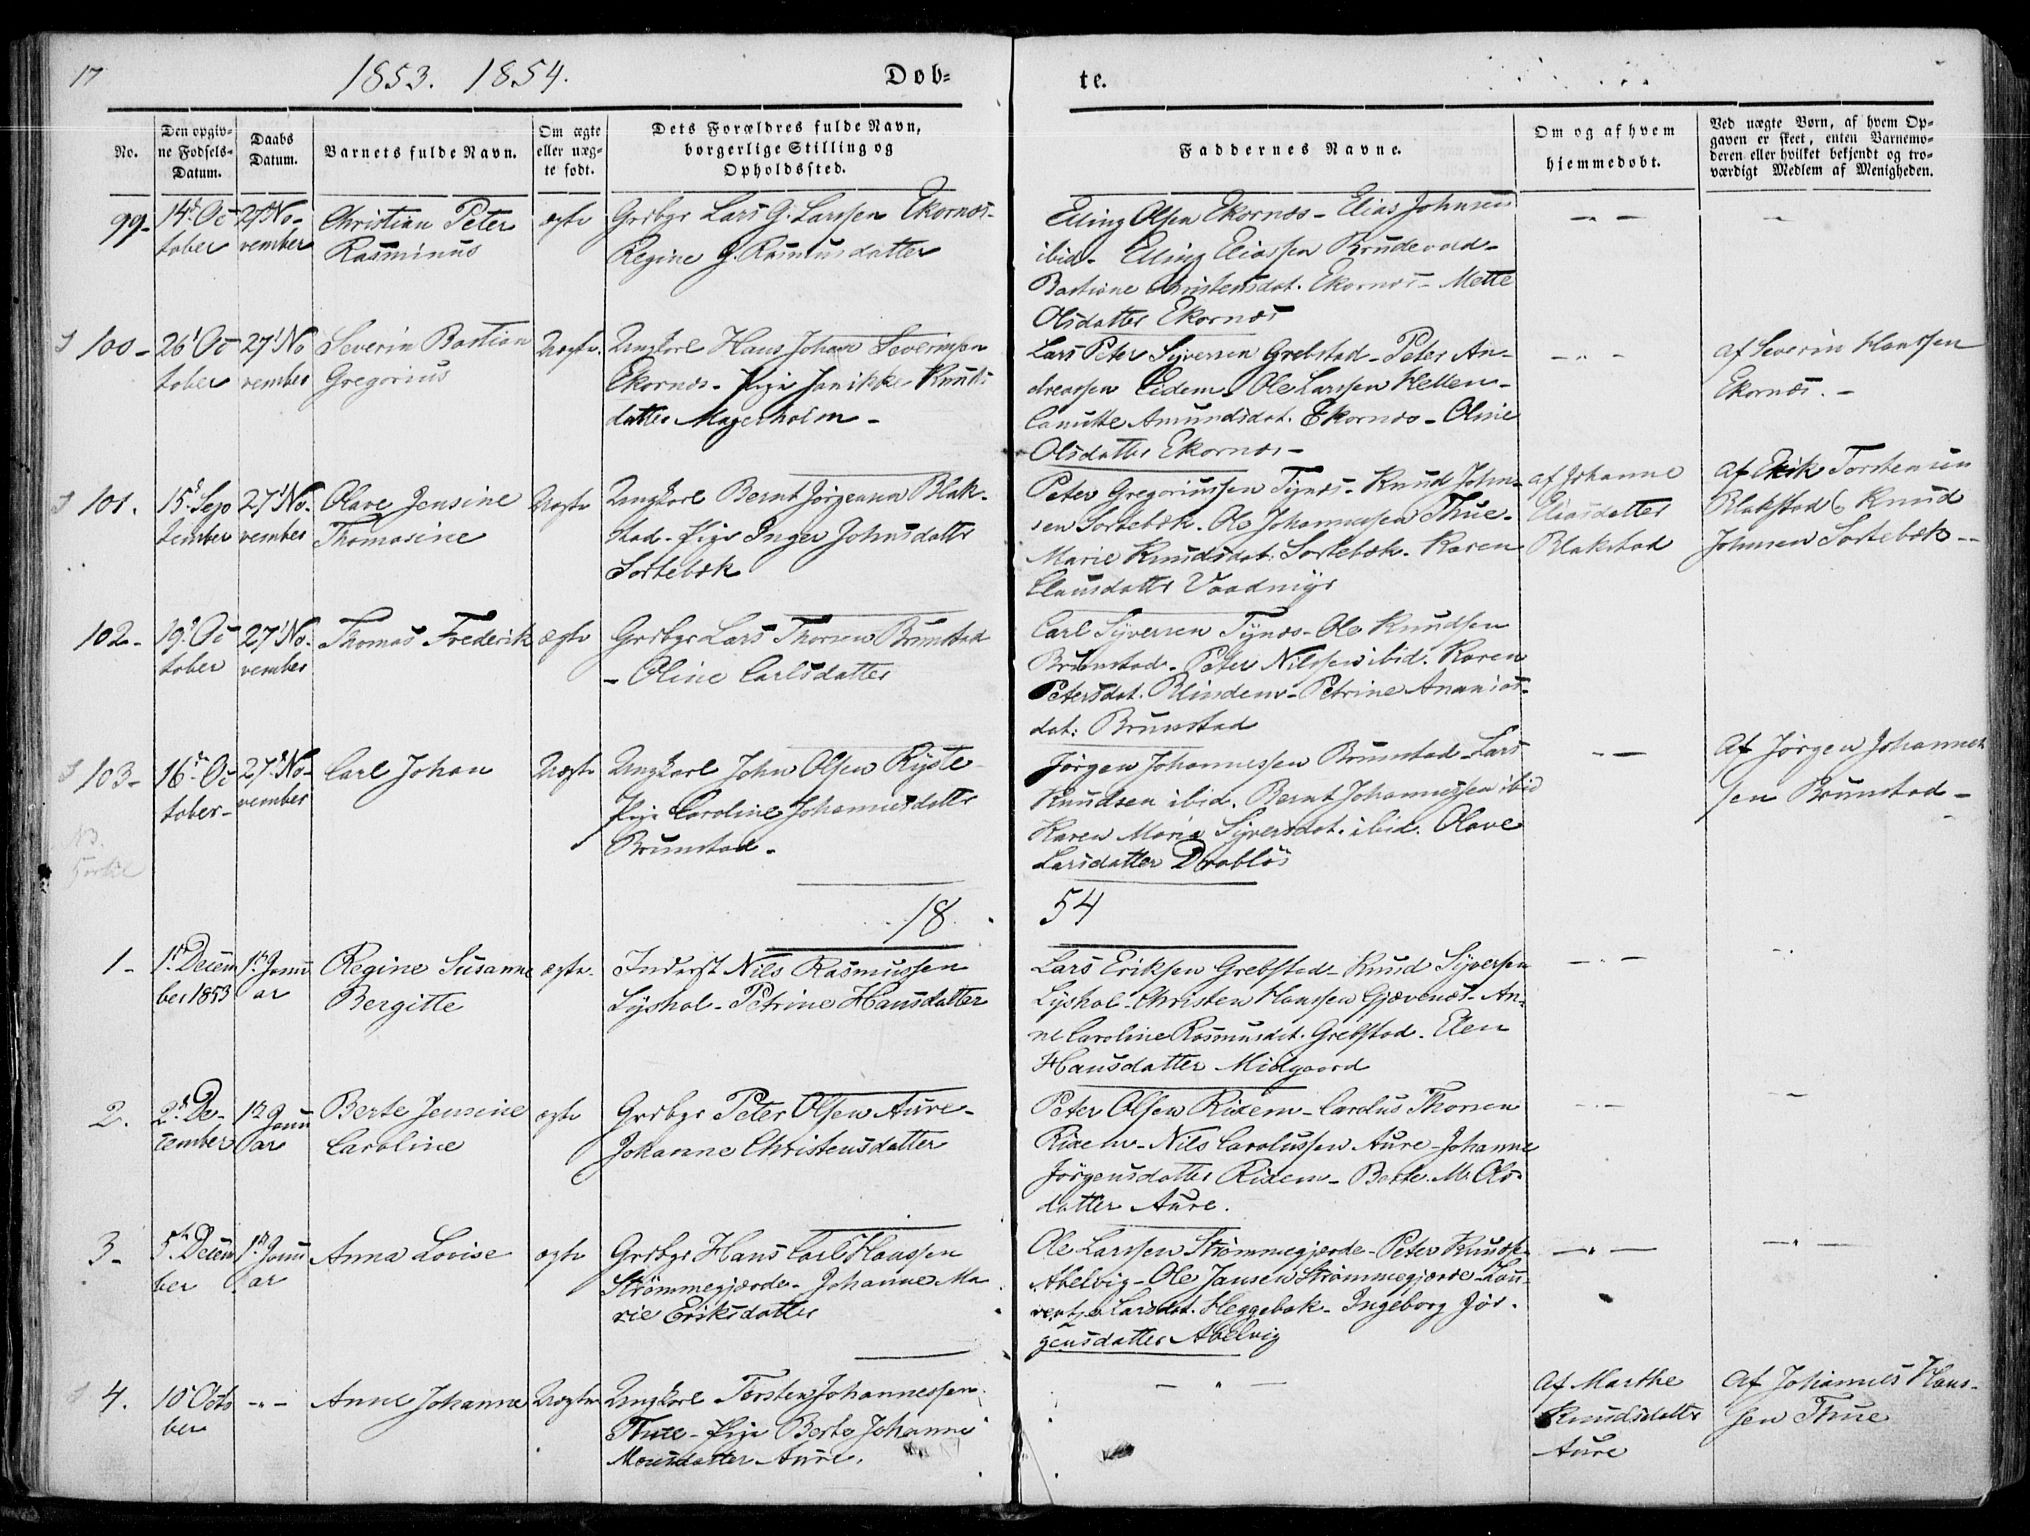 17
1853. 1854.
Døb=
te.
No.
Den opgiv=
ne Fødsels=
Datum.
Daabs
Datum.
Barnets fulde Navn.
Om ægte
eller uæg=
te født.
Dets Forældres fulde Navn,
borgerlige Stilling og
Opholdssted.
Faddernes Navne.
Om og af hvem
hjemmedøbt.
Ved uægte Børn, af hvem Op=
gaven er skeet, enten Barnemo=
deren eller hvilket bekjendt og tro=
værdigt Medlem af Menigheden.
99-
14d Oc
tober
27d No-
vember
Christian Peter
Rasminus
ægte
Grdbgr Lars G. Larssen Ekornæs-
Regine G. Rasmusdatter
Elling Olsen Ekornæs - Elias Johnsen
ibid - Elling Eliassen Brudevold-
Bastiane Christensdat. Ekornæs - Mette
Olsdatter Ekornæs
100-
26' Oc
tober
27' No
vember
Severin Bastian
Gregorius
Uægte.
Ungkarl Hans Johan Severinsen
Ekornæs - Pige Janikke Knuds
datter Magerholm -
Lars Peter Syversen Grebstad - Peter An-
dreassen Eidem - Ole Larssen Hellen-
Canutte Amundsdat. Ekornæs - Oline
Olsdatter Ekornæs -
af Severin Hanssen
Ekornæs. -
101.
15d Sep
tember
27' No-
vember
Olave Jensine
Thomasine
Uægte
Ungkarl Bernt Jørgensen Blak-
stad - Pige Inger Johnsdatter
Sortebæk
Peter Gregoriussen Tynæs - Knud John-
sen Sortebæk - Ole Johannessen Thue-
Marie Knudsdat. Sortebæk - Karen
Clausdatter Vaadmyr
af Johanne
Eliasdatter
Blakstad
af Erik Torstensen
Blakstad & Knud
Johnsen Sortebæk -
102-
19d Oc
tober
27' No-
vember
Thomas Frederik
ægte
Grdbgr Lars Thorsen Brunstad
- Oline Carlsdatter
Carl Syversen Tynæs - Ole Knudsen
Brunstad - Peter Nilssen ibid. Karen
Petersdat. Blindem - Petrine Ananias-
dat: Brunstad
103-
16d Oc
tober-
27d No-
vember
Carl Johan
Uægte
Ungkarl John Olsen Ryste-
Pige Caroline Johannesdatter
Brunstad -
Jørgen Johannessen Brunstad - Lars
Knudsen ibid. Bernt Johannessen ibid
Karen Maria Syversdat. ibid. Olave
Larsdatter Drabløs
Af Jørgen Johannes
sen Brunstad -
18
54
1-
1st Decem
ber 1853
1st Janu
ar
Regine Susanne
Bergitte
ægte.
Inderst Nils Rasmussen
Lyshol - Petrine Hansdatter
Lars Eriksen Grebstad - Knud Syversen
Lyshol - Christen Hanssen Gjævenæs - An-
ne Caroline Rasmusdat. Grebstad. Elen
Hansdatter Midgaard
2.
2d De-
cember
1st Janu
ar
Berte Jensine
Caroline
ægte
Grdbgr Peter Olsen Aure-
Johanne Christensdatter
Peter Olsen Rixem - Carolus Thorsen
Rixem - Nils Carolussen Aure - Johanne
Jørgensdatter Rixem - Berte M. Ols-
datter Aure.
3-
5te Decem
ber
1st Janu
ar
Anna Lovise
ægte
Grdbgr Hans Carl Hanssen
Strømmegjærde - Johanne Ma
rie Eriksdatter
Ole Larssen Strømmegjærde - Peter Knudse
Abelvig - Ole Jansen Strømmegjærde - Lau-
rentze Larsdat. Heggebak - Ingeborg Jør-
gensdatter Abelvig
4.
10 Octo
ber
Anne Johanne
Uægte
Ungkarl Torsten Johannessen
Thue - Pige Berte Johanne
Monsdatter Aure.
Af Marthe
Knudsdatter
Aure
Af Johannes Hans-
sen Thue